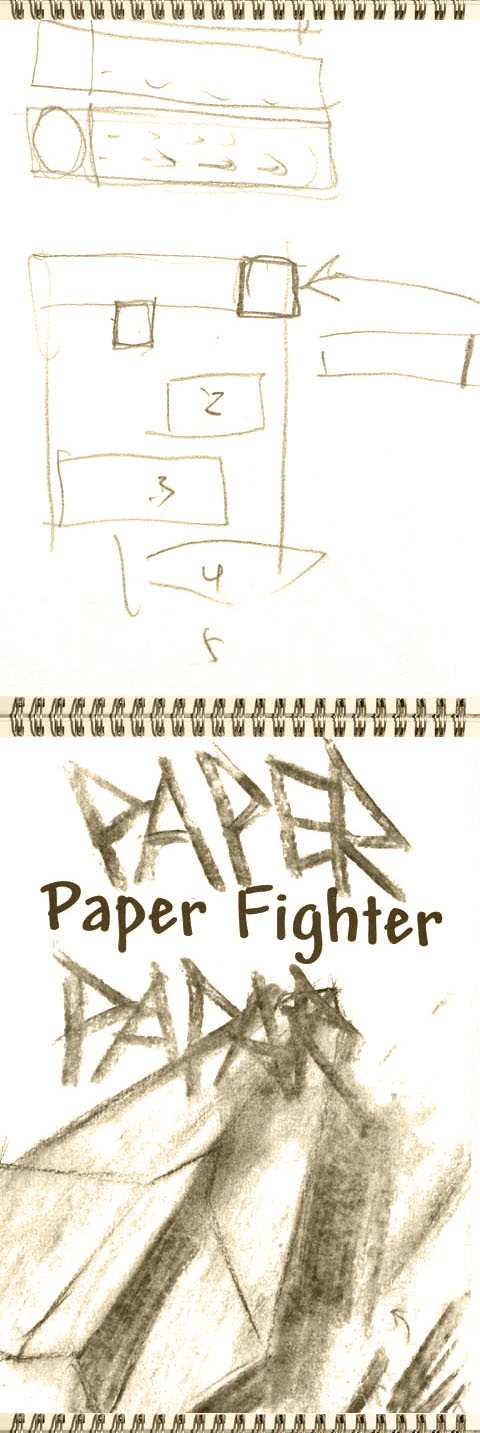 2
3
4
5
PAPER
Paper Fighter
PAPER